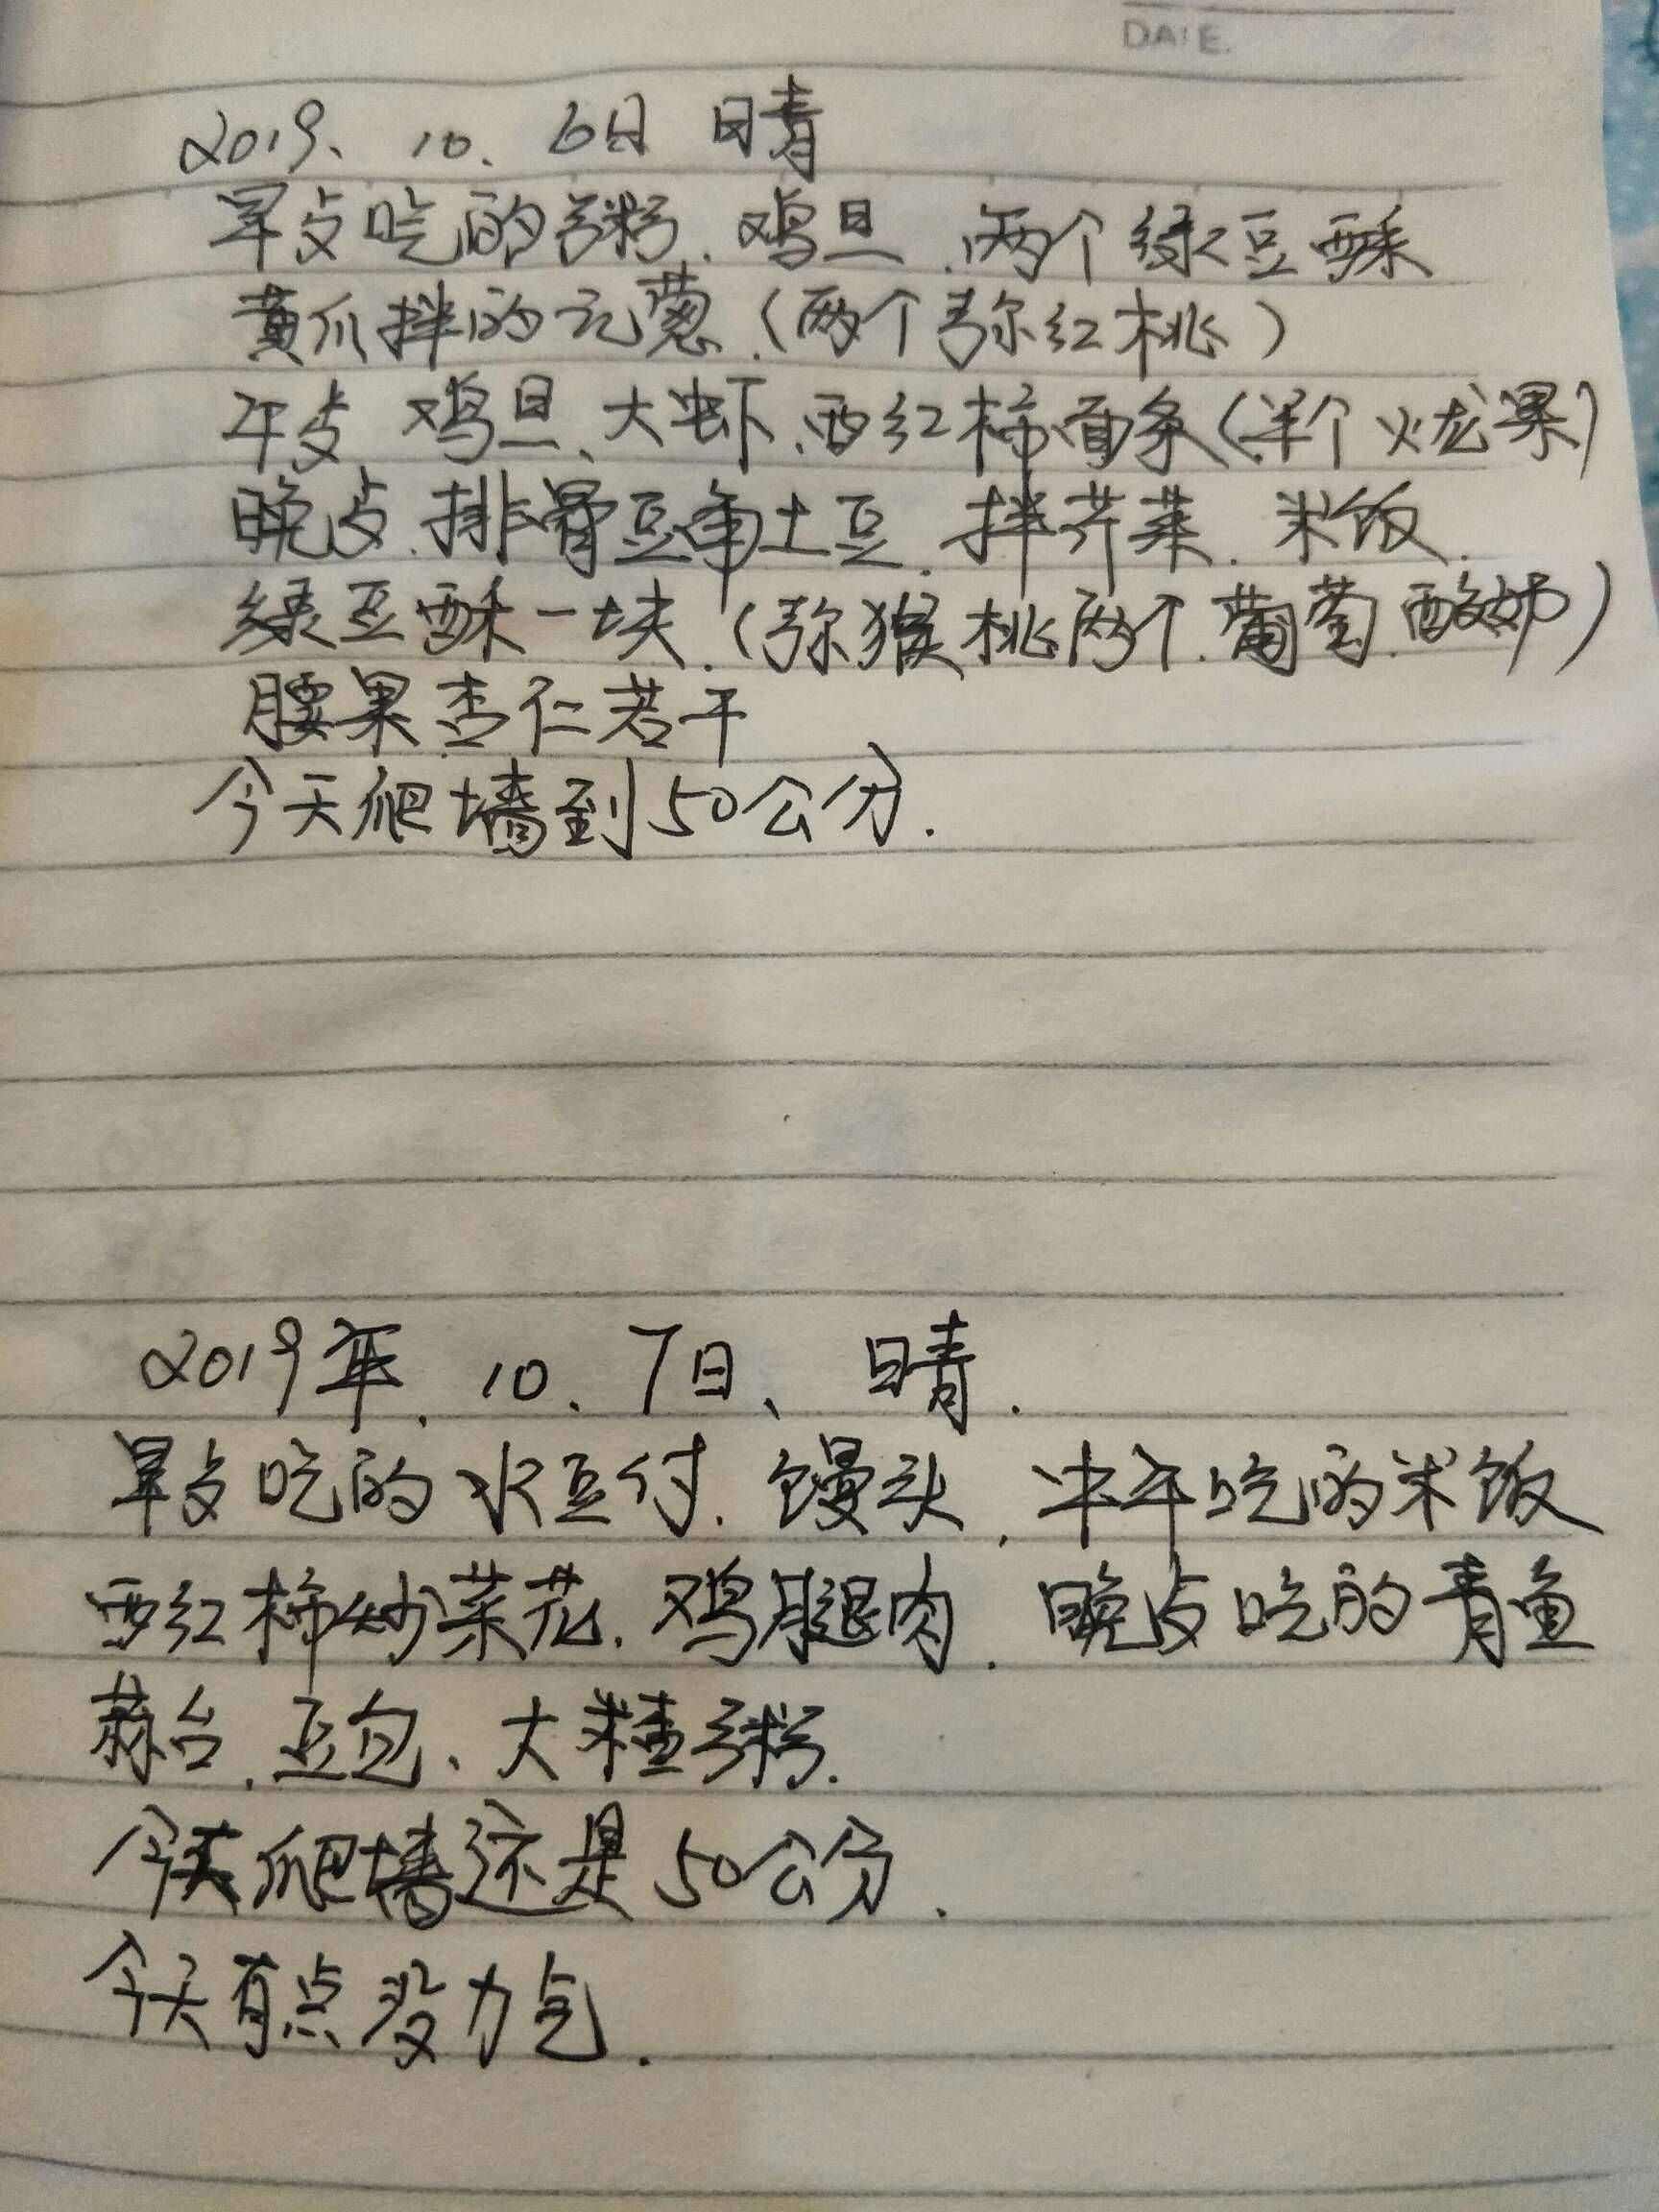 DATE.
2019、10、6日 晴
早点吃的粥.鸡旦.两个绿豆酥
黄瓜拌的元葱.(两个弥红桃)
午点 鸡旦、大虾.西红柿面条(半个火龙果)
晚点.排骨豆角土豆.拌芹菜.米饭.
绿豆酥一块.(弥猴桃两个.葡萄.酸奶)
腰果杏仁若干
今天爬墙到50公分.
2019年.10、7日、晴.
早点吃的水豆付.馒头.中午吃的米饭
西红柿炒菜花.鸡腿肉.晚点吃的青鱼
蒜台.豆包、大𥻗粥.
今天爬墙还是50公分.
今天有点没力气.